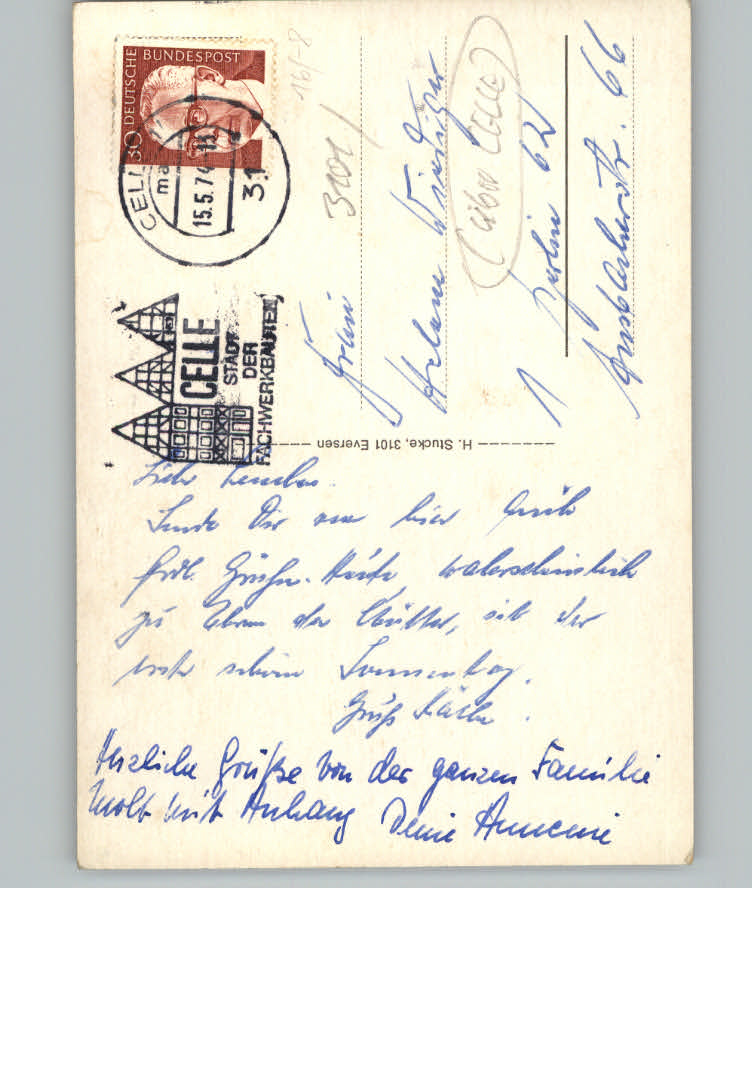 DEUTSCHE BUNDESPOST
30
CELLE
15.5.74
31
CELLE
STADT
DER
FACHWERKBAUTEN
16/-8
3101/
Frau
Helene
(über Celle)
1 Berlin 62
Ansbacherstr. 66
H. Stucke, 3101 Eversen
Liebe
Sende Dir von hier
frdl. Grüße. Heute wahrscheinlich
zu Ehren der Mütter, ist der
erste schöne Sonnentag.
Gruß Käthe.
Herzliche Grüße von der ganzen Familie
mit Anhang Deine Annemie